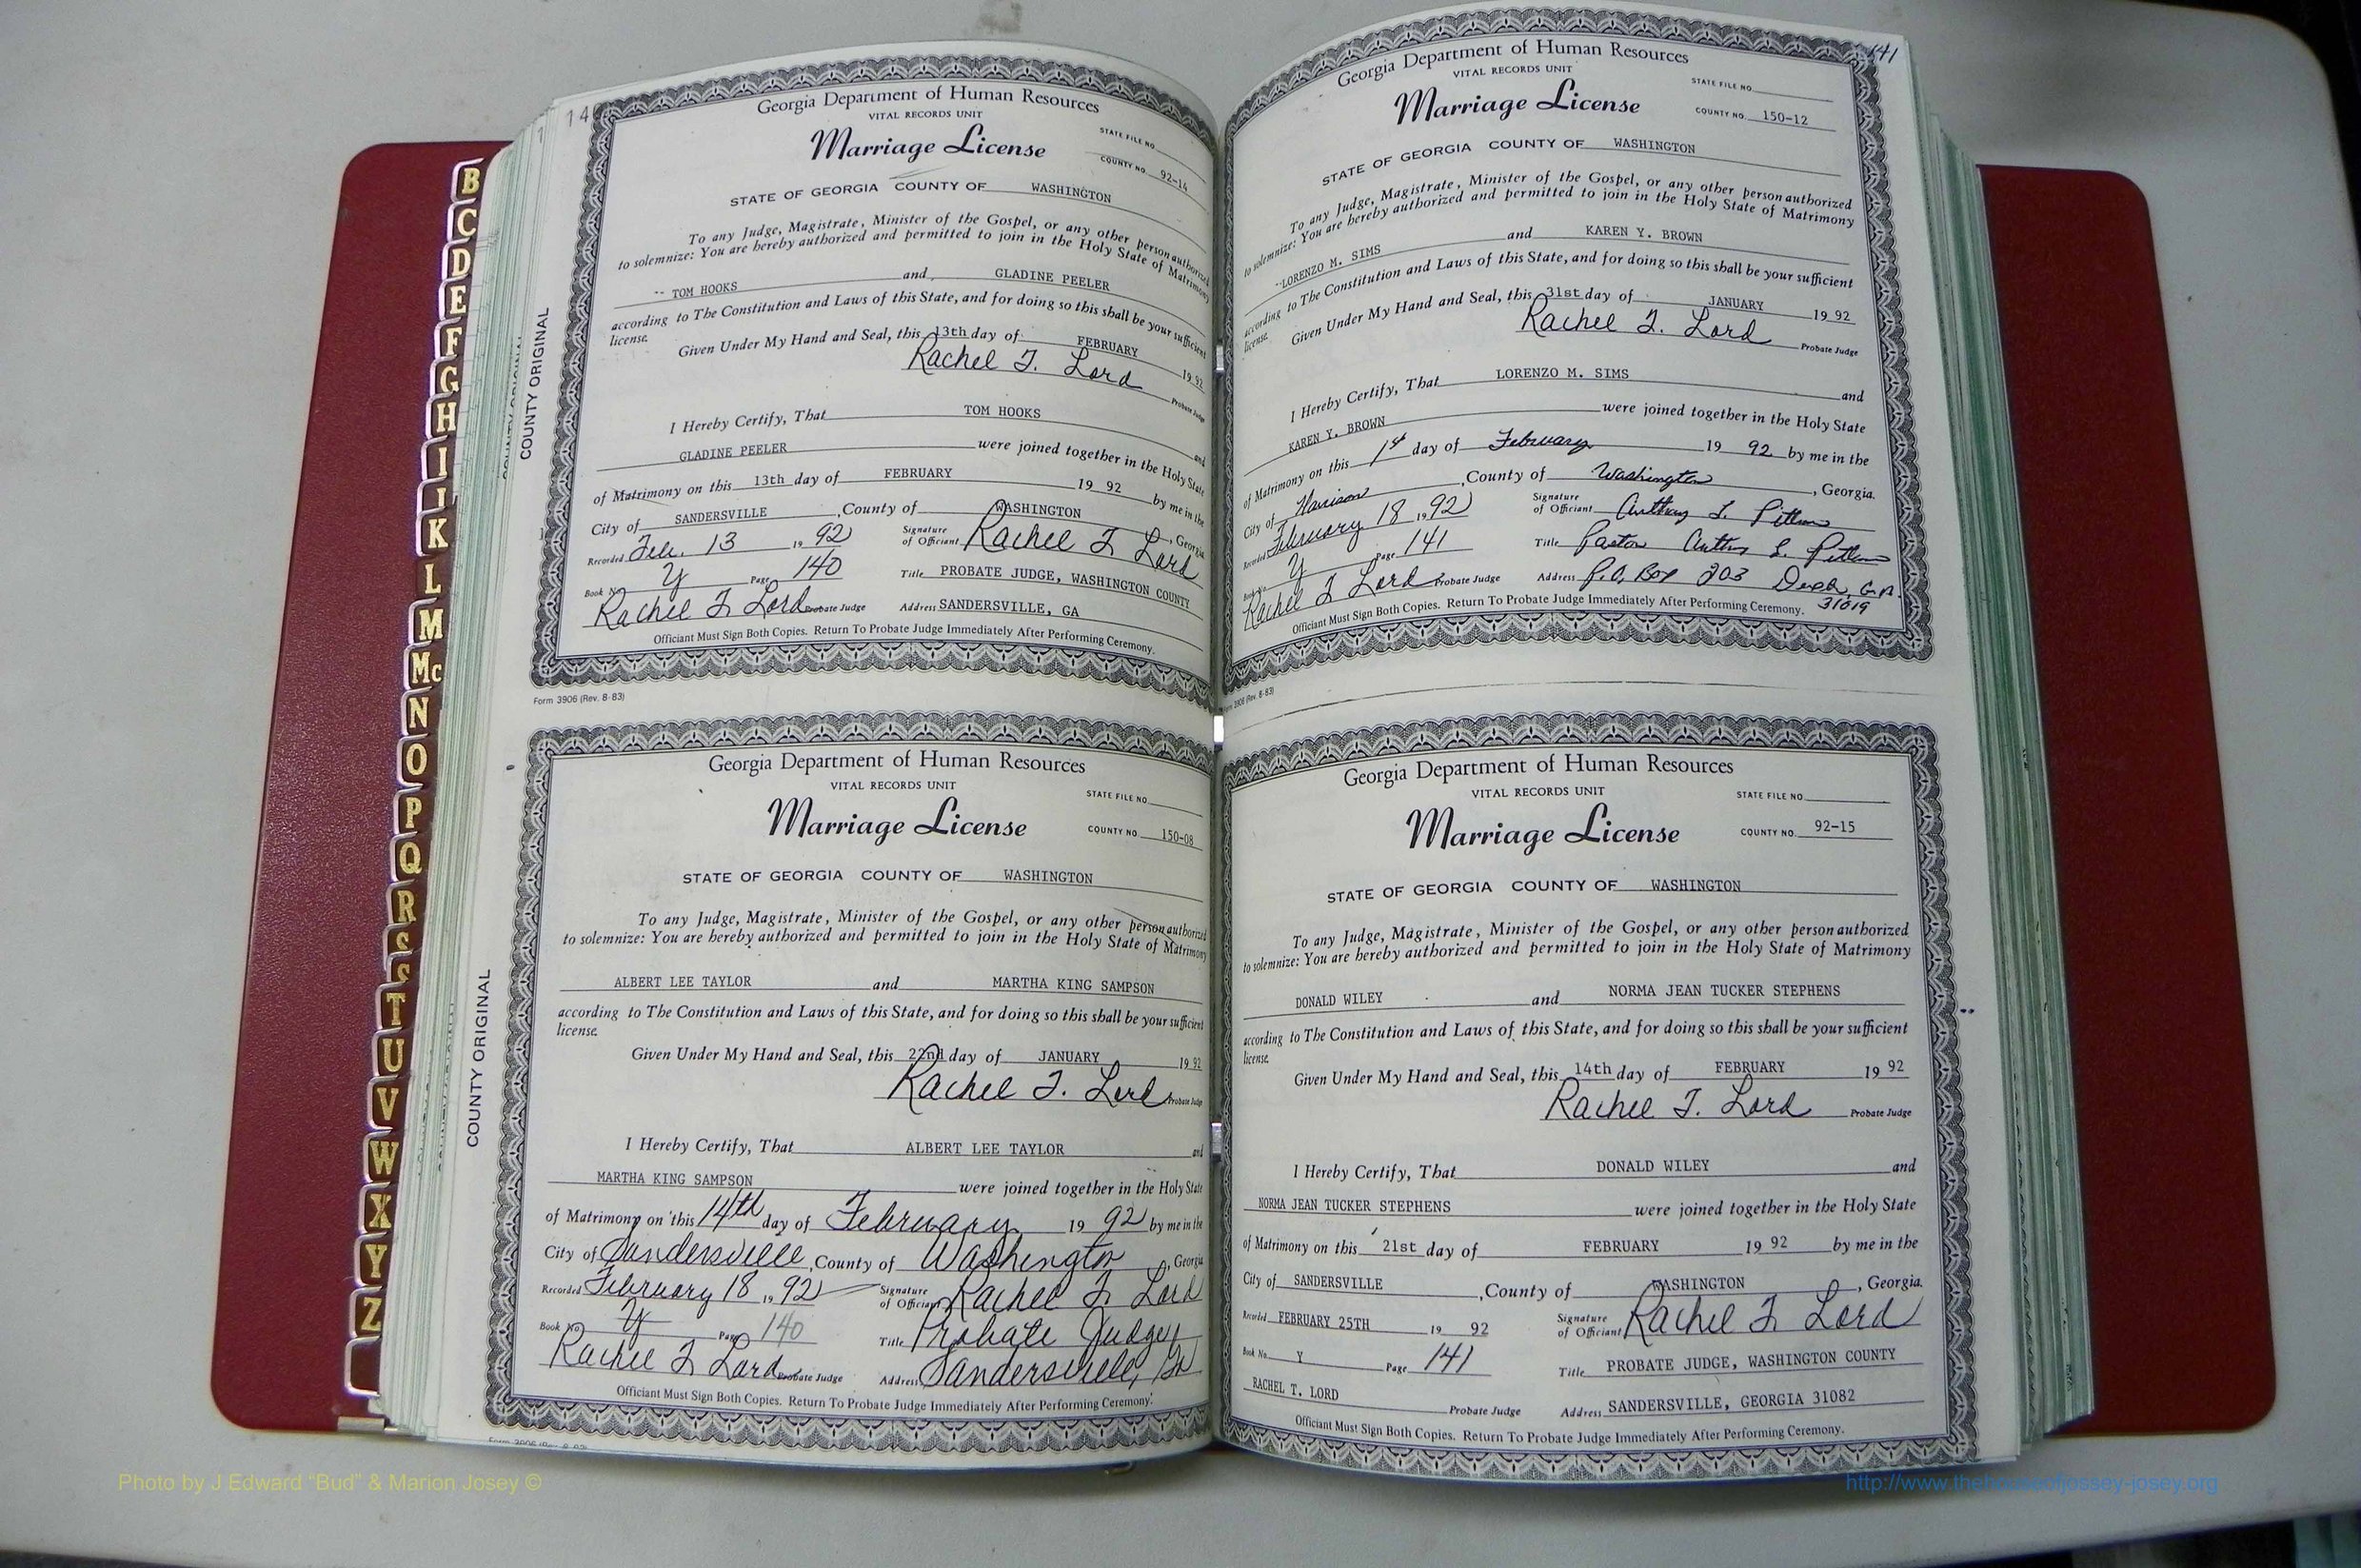 B
C
D
E
F
G
H
I
J
K
L
M
Mc
N
O
P
Q
R
S
T
U
V
W
X
Y
Z
14
COUNTY ORIGINAL
Georgia Department of Human Resources
VITAL RECORDS UNIT
Marriage License
STATE FILE NO.
COUNTY NO. 92-14
STATE OF GEORGIA COUNTY OF WASHINGTON
To any Judge, Magistrate, Minister of the Gospel, or any other person authorized
to solemnize: You are hereby authorized and permitted to join in the Holy State of Matrimony
-- TOM HOOKS and GLADINE PEELER
according to The Constitution and Laws of this State, and for doing so this shall be your sufficient
license.
Given Under My Hand and Seal, this 13th day of FEBRUARY 19 92
Rachel T. Lord Probate Judge
I Hereby Certify, That TOM HOOKS and
GLADINE PEELER were joined together in the Holy State
of Matrimony on this 13th day of FEBRUARY 19 92 by me in the
City of SANDERSVILLE, County of WASHINGTON, Georgia
Recorded Feb. 13 19 92 Signature of Officiant Rachel T. Lord
Book No. Y Page 140 Title PROBATE JUDGE, WASHINGTON COUNTY
Rachel T. Lord Probate Judge Address SANDERSVILLE, GA
Officiant Must Sign Both Copies. Return To Probate Judge Immediately After Performing Ceremony.
Form 3906 (Rev. 8-83)
COUNTY ORIGINAL
Georgia Department of Human Resources
VITAL RECORDS UNIT
Marriage License
STATE FILE NO.
COUNTY NO. 150-08
STATE OF GEORGIA COUNTY OF WASHINGTON
To any Judge, Magistrate, Minister of the Gospel, or any other person authorized
to solemnize: You are hereby authorized and permitted to join in the Holy State of Matrimony
ALBERT LEE TAYLOR and MARTHA KING SAMPSON
according to The Constitution and Laws of this State, and for doing so this shall be your sufficient
license.
Given Under My Hand and Seal, this 22nd day of JANUARY 19 92
Rachel T. Lord Probate Judge
I Hereby Certify, That ALBERT LEE TAYLOR and
MARTHA KING SAMPSON were joined together in the Holy State
of Matrimony on this 14th day of February 19 92 by me in the
City of Sandersville, County of Washington, Georgia
Recorded February 18 19 92 Signature of Officiant Rachel T. Lord
Book No. Y Page 140 Title Probate Judge
Rachel T. Lord Probate Judge Address Sandersville, Ga
Officiant Must Sign Both Copies. Return To Probate Judge Immediately After Performing Ceremony.
141
Georgia Department of Human Resources
VITAL RECORDS UNIT
Marriage License
STATE FILE NO.
COUNTY NO. 150-12
STATE OF GEORGIA COUNTY OF WASHINGTON
To any Judge, Magistrate, Minister of the Gospel, or any other person authorized
to solemnize: You are hereby authorized and permitted to join in the Holy State of Matrimony
--LORENZO M. SIMS and KAREN Y. BROWN
according to The Constitution and Laws of this State, and for doing so this shall be your sufficient
license.
Given Under My Hand and Seal, this 31st day of JANUARY 19 92
Rachel T. Lord Probate Judge
I Hereby Certify, That LORENZO M. SIMS and
KAREN Y. BROWN were joined together in the Holy State
of Matrimony on this day of February 19 92 by me in the
City of Harrison, County of Washington, Georgia.
Recorded February 18, 1992 Signature of Officiant
Book No. Y Page 141 Title Pastor
Rachel T. Lord Probate Judge Address P.O. Box 203 GA.
31019
Officiant Must Sign Both Copies. Return To Probate Judge Immediately After Performing Ceremony.
Form 3906 (Rev. 8-83)
Georgia Department of Human Resources
VITAL RECORDS UNIT
Marriage License
STATE FILE NO.
COUNTY NO. 92-15
STATE OF GEORGIA COUNTY OF WASHINGTON
To any Judge, Magistrate, Minister of the Gospel, or any other person authorized
to solemnize: You are hereby authorized and permitted to join in the Holy State of Matrimony
DONALD WILEY and NORMA JEAN TUCKER STEPHENS
according to The Constitution and Laws of this State, and for doing so this shall be your sufficient
license.
Given Under My Hand and Seal, this 14th day of FEBRUARY 19 92
Rachel T. Lord Probate Judge
I Hereby Certify, That DONALD WILEY and
NORMA JEAN TUCKER STEPHENS were joined together in the Holy State
of Matrimony on this 21st day of FEBRUARY 19 92 by me in the
City of SANDERSVILLE, County of WASHINGTON, Georgia.
Recorded FEBRUARY 25TH 19 92 Signature of Officiant Rachel T. Lord
Book No. Y Page 141 Title PROBATE JUDGE, WASHINGTON COUNTY
RACHEL T. LORD Probate Judge Address SANDERSVILLE, GEORGIA 31082
Officiant Must Sign Both Copies. Return To Probate Judge Immediately After Performing Ceremony.
Photo by J Edward "Bud" & Marion Josey ©
http://www.thehouseofjossey-josey.org